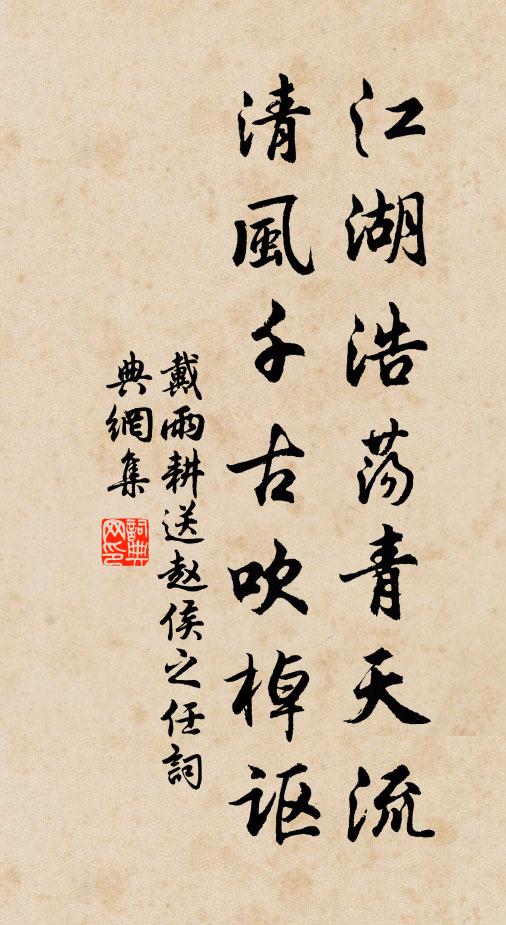 江湖浩荡青天流
清風千古吹棹讴
戴雨耕送赵侯之任詞
典網集
詞典網印